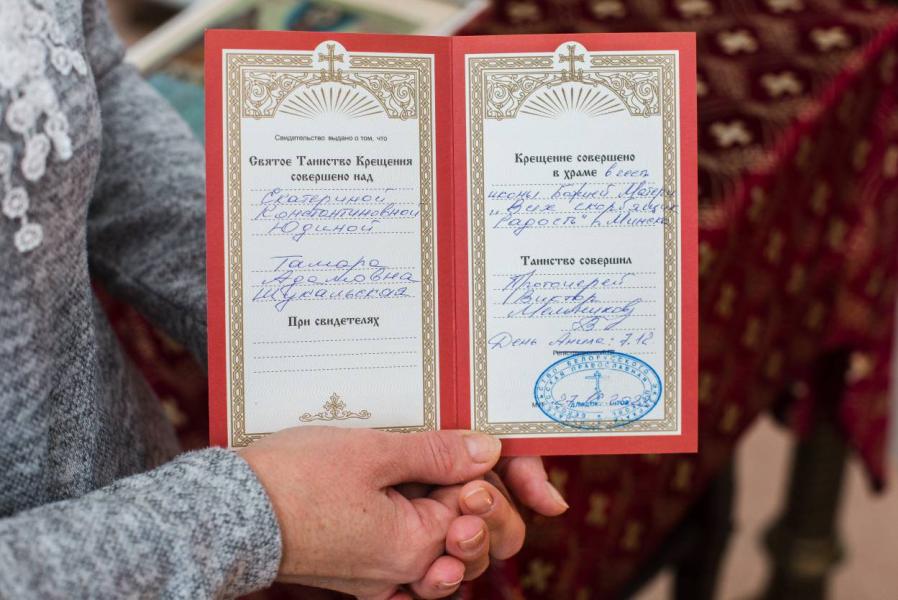 Свидетельство выдано о том, что
Святое Таинство Крещения
совершено над
Екатериной
Константиновной
Юдиной
Тамара
Адамовна
Шукальская
При свидетелях
Крещение совершено
в храме в честь
иконы Божией Матери
"Всех скорбящих
Радость" г. Минска
Таинство совершил
Протоиерей
Виктор
День Ангела: 7.12